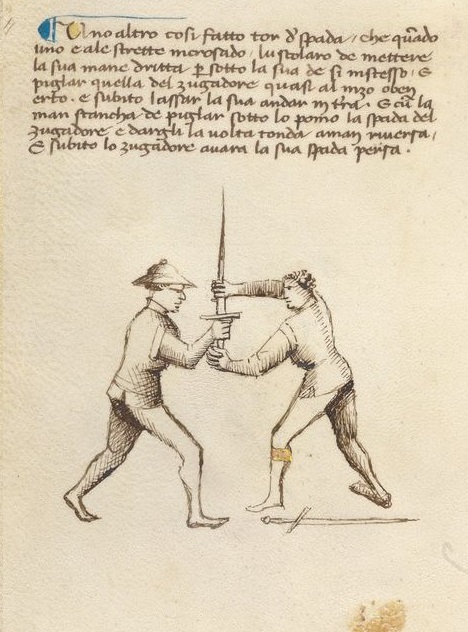 Uno altro cosi fatto tor d'spada, che q̄ado
uno e ale strette incrosado, lu scolaro de mettere
la sua mane dritta p̱ sotto la sua de si instesso. E
pigliar quella del zugadore quasi al mezo oben
erto. e subito lassar la sua andar in tra. E cū la
man stancha de pigliar sotto lo pomo la spada del
zugadore e dargli la volta tonda aman riversa,
E subito lo zugadore avara la sua spada persa.